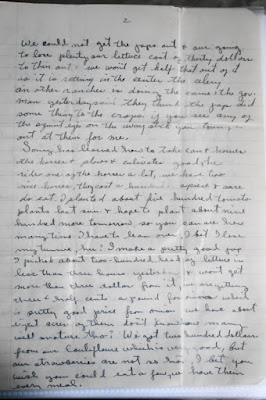 2
We could not get the japs out & are going
to lose plenty our lettuce cost of thirty dollars
to thin out & we won't get half that out of it
as it is rotting in the center the celery
an other ranches is doing the same & the gov.
man yesterday said they think the jap did
some thing to the crops if you see any of
the squint eyes on the way
out at them for me.
Sonny has learned how to take care & harness
the horses & plows & cultivates good & he
rides one of the horses a lot, we have two
nice horses, they cost a hundred apiece & sure
do eat. I planted about five hundred tomato
plants last even & hope to plant about nine
hundred more tomorrow so you can see how
many times I have to bend over, I bet I lose
my tummie, hu? I make a pretty good jap
I picked about two hundred head of lettuce in
less than three hours yesterday & won't get
more than three dollars from it we are getting
three & half cents a pound for onions which
is pretty good price for onions we have about
eight acres of them don't know how many
will mature tho? We got two hundred dollars
from our Cauliflower which is very good, but
our strawberries are not so hot. I bet you
wish you could eat a few, we have them
every meal.